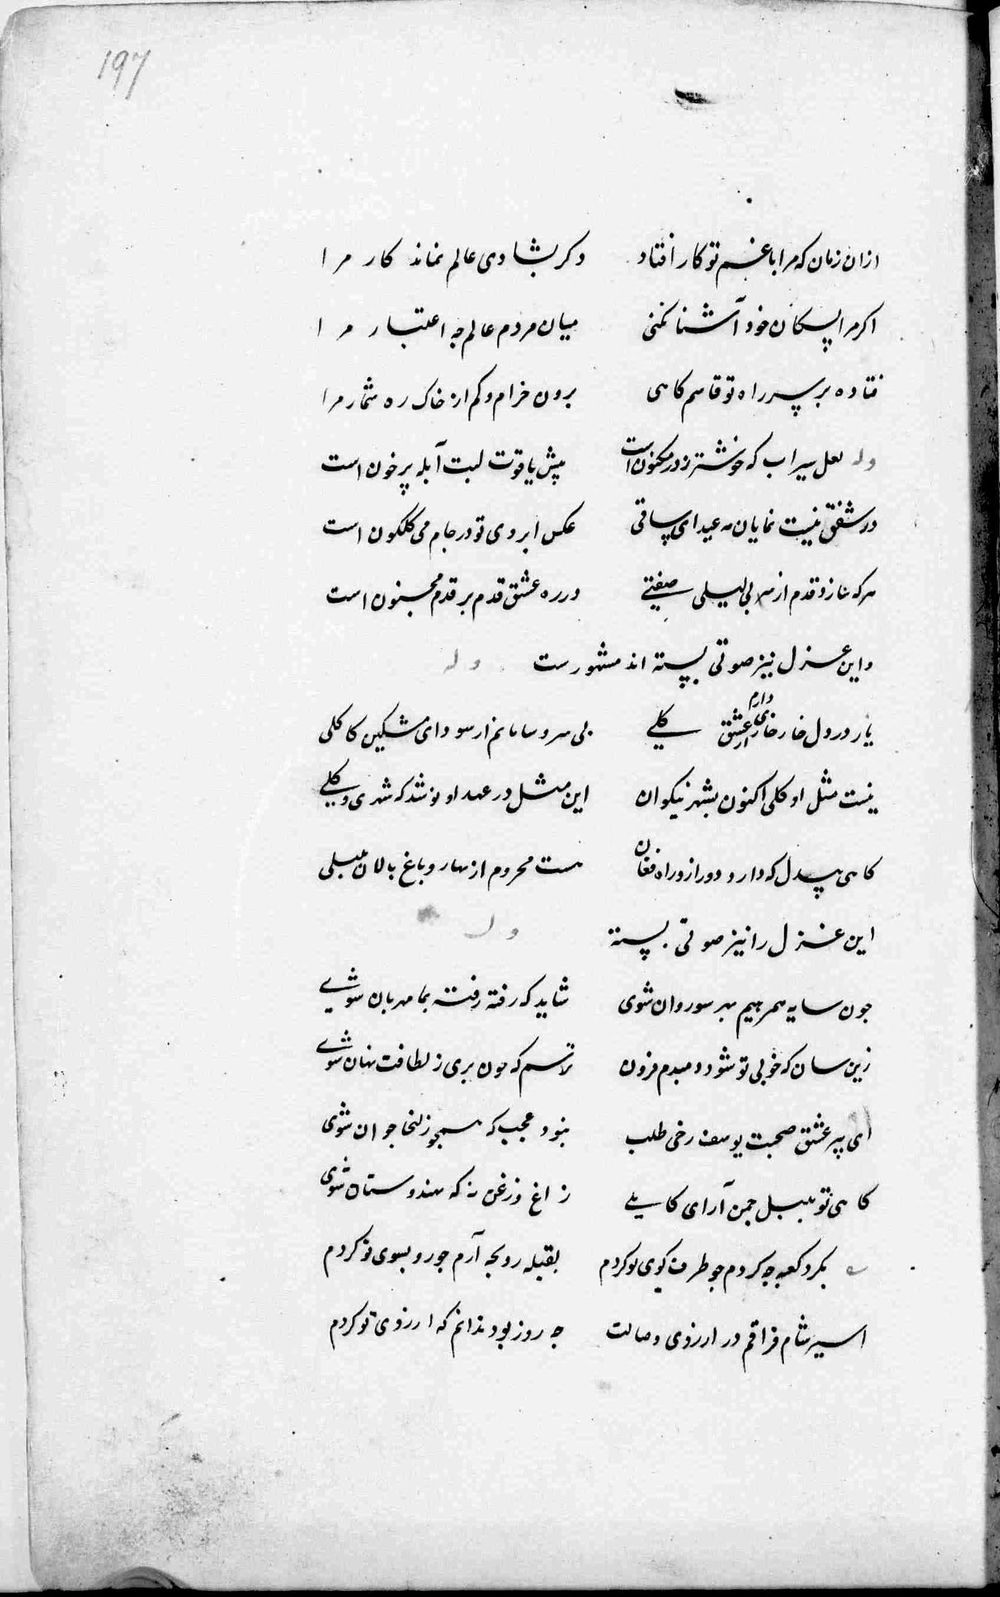 197
ازان زمان که مرا با غم تو کار افتاد دکر بشادی عالم نماند کار مرا
اکر مرا بسکان خود آشنا نکنی میان مردم عالم چه اعتبار مرا
فتاده بر سر راه تو قاسم کاهی برون خرام و کم از خاک ره شمار مرا
وله لعل سیراب که خوشتر ز در مکنون است پیش یاقوت لبت آبله پر خون است
در شفق نیست نمایان مه عید ای ساقی عکس ابروی تو در جام می کلکون است
هر که سازد قدم از سر پی لیلی صفتی در ره عشق قدم بر قدم مجنون است
و این غزل نیز صوتی بسته اند مشهورست وله
یار در دل خار خاری دارم از عشق کلی بی سر و سامانم از سودای مشکین کاکلی
نیست مثل او کلی اکنون بشهر نیکوان این مثل در عهد او نو شد که شهری و کلی
کاهی بیدل که دارد دور از و راه فغان هست محروم از بهار و باغ نالان بلبلی
این غزل را نیز صوتی بسته وله
چون سایه همرهیم بهر سو روان شوی شاید که رفته رفته بما مهربان شوی
زین سان که خوبی تو شود دمبدم فزون ترسم که چون پری ز لطافت نهان شوی
ای پیر عشق صحبت یوسف رخی طلب نبود عجب که همچو زلیخا جوان شوی
کاهی تو بلبل چمن آرای کابلی زاغ و زغن نه که هندوستان شوی
بکرد کعبه چه کردم چو طرف کوی تو کردم بقبله رو بچه آرم چو رو بسوی تو کردم
اسیر شام فراقم در ارزوی وصالت چه روز بود ندانم که ارزوی تو کردم